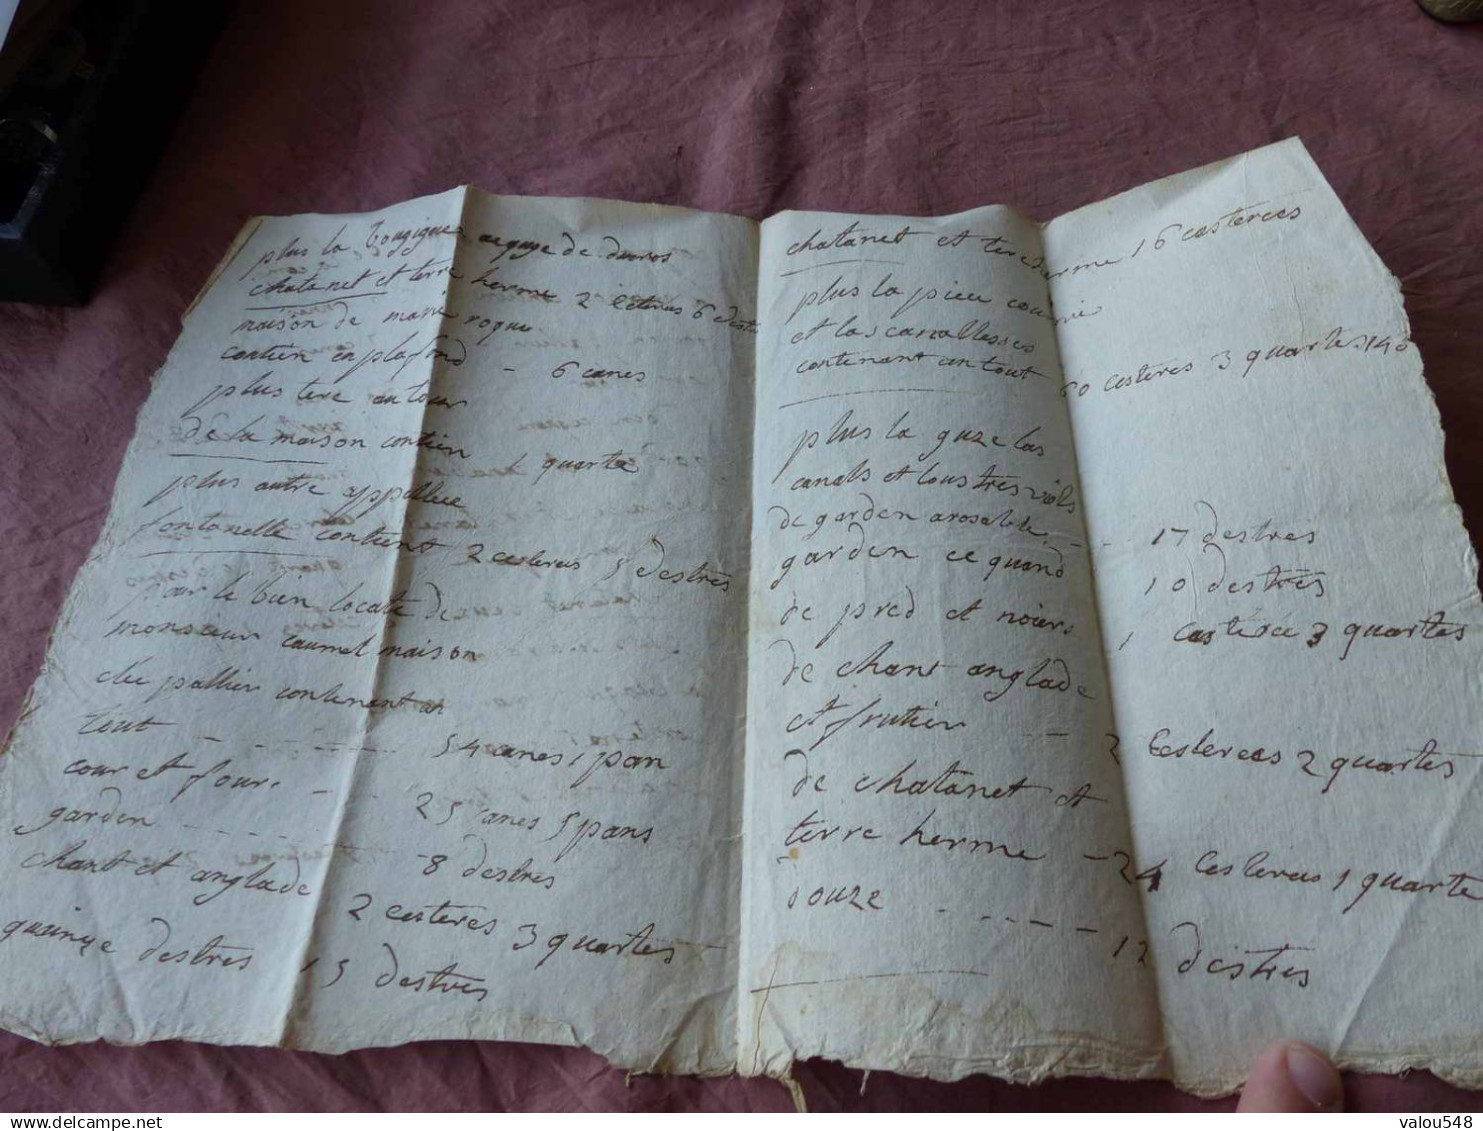 plus la bougigues aeguze de duoros
chatanet et terre herme 2 cesteres 6 destres
maison de marie roque
contien en plafond - 6 canes
plus tere autour
de la maison contien 1 quarte
plus autre appellee
fontanelle contient 2 cesteres 5 destres
par le bien locate de
monsieur caumel maison
et pallier contenant an
tout - - - - - 54 canes 1 pan
cour et four. - - - 25 canes 5 pans
garden - - - - - 8 destres
chant et anglade 2 cesteres 3 quartes
quinze destres 15 destres
chatanet et tere herme 16 cesterees
plus la pieu
et las canallesses
contenant an tout 60 cesteres 3 quartes 14 d
plus la guze las
canals et lous tres viols
de garden arosable - - - 17 destres
garden ce quand 10 destres
de pred et noiers 1 casterée 3 quartes
de chant anglade
et frutier - - - 2 Cesterees 2 quartes
de chatanet et
terre herme - 24 Cesterees 1 quarte
douze - - - - - 12 destres
valou548